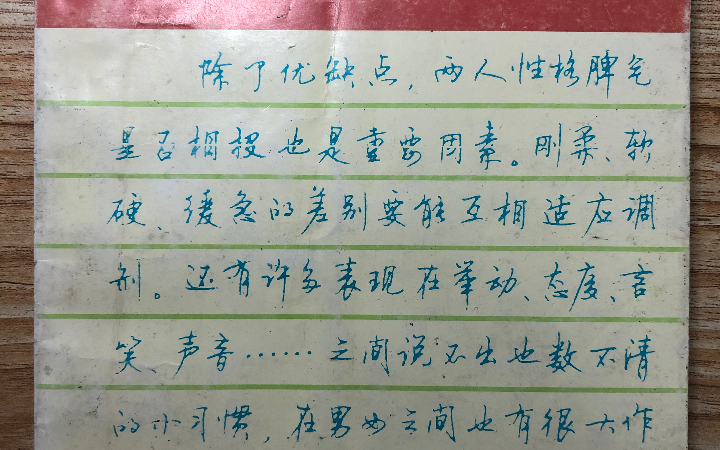 除了优缺点，两人性格脾气
是否相投也是重要因素。刚柔、软
硬、缓急的差别要能互相适应调
剂。还有许多表现在举动、态度、言
笑、声音……之间说不出也数不清
的小习惯，在男女之间也有很大作